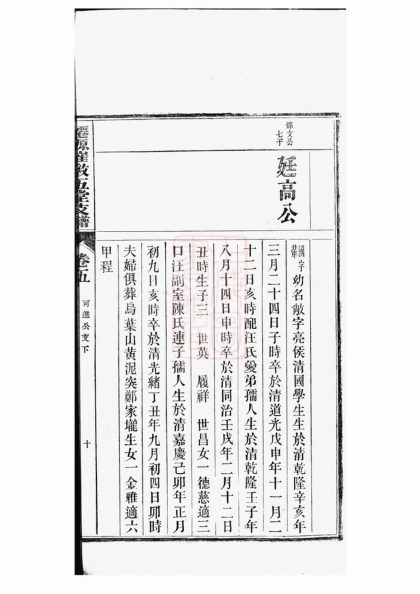 煃文公
七子
廷高公
國字
輩
幼名敞字亮侯清國學生生於清乾隆辛亥年
三月二十四日子時卒於清道光戊申年十一月二
十二日亥時配汪氏愛弟孺人生於清乾隆壬子年
八月十四日申時卒於清同治壬戌年二月十二日
丑時生子三 世英 履祥 世昌女一德慈適三
口汪副室陳氏連子孺人生於清嘉慶己卯年正月
初九日亥時卒於清光緒丁丑年九月初四日卯時
夫婦俱葬烏葉山黄泥突鄭家壠生女一金雅適六
甲程
五堂支譜
卷五
可進公支下
十